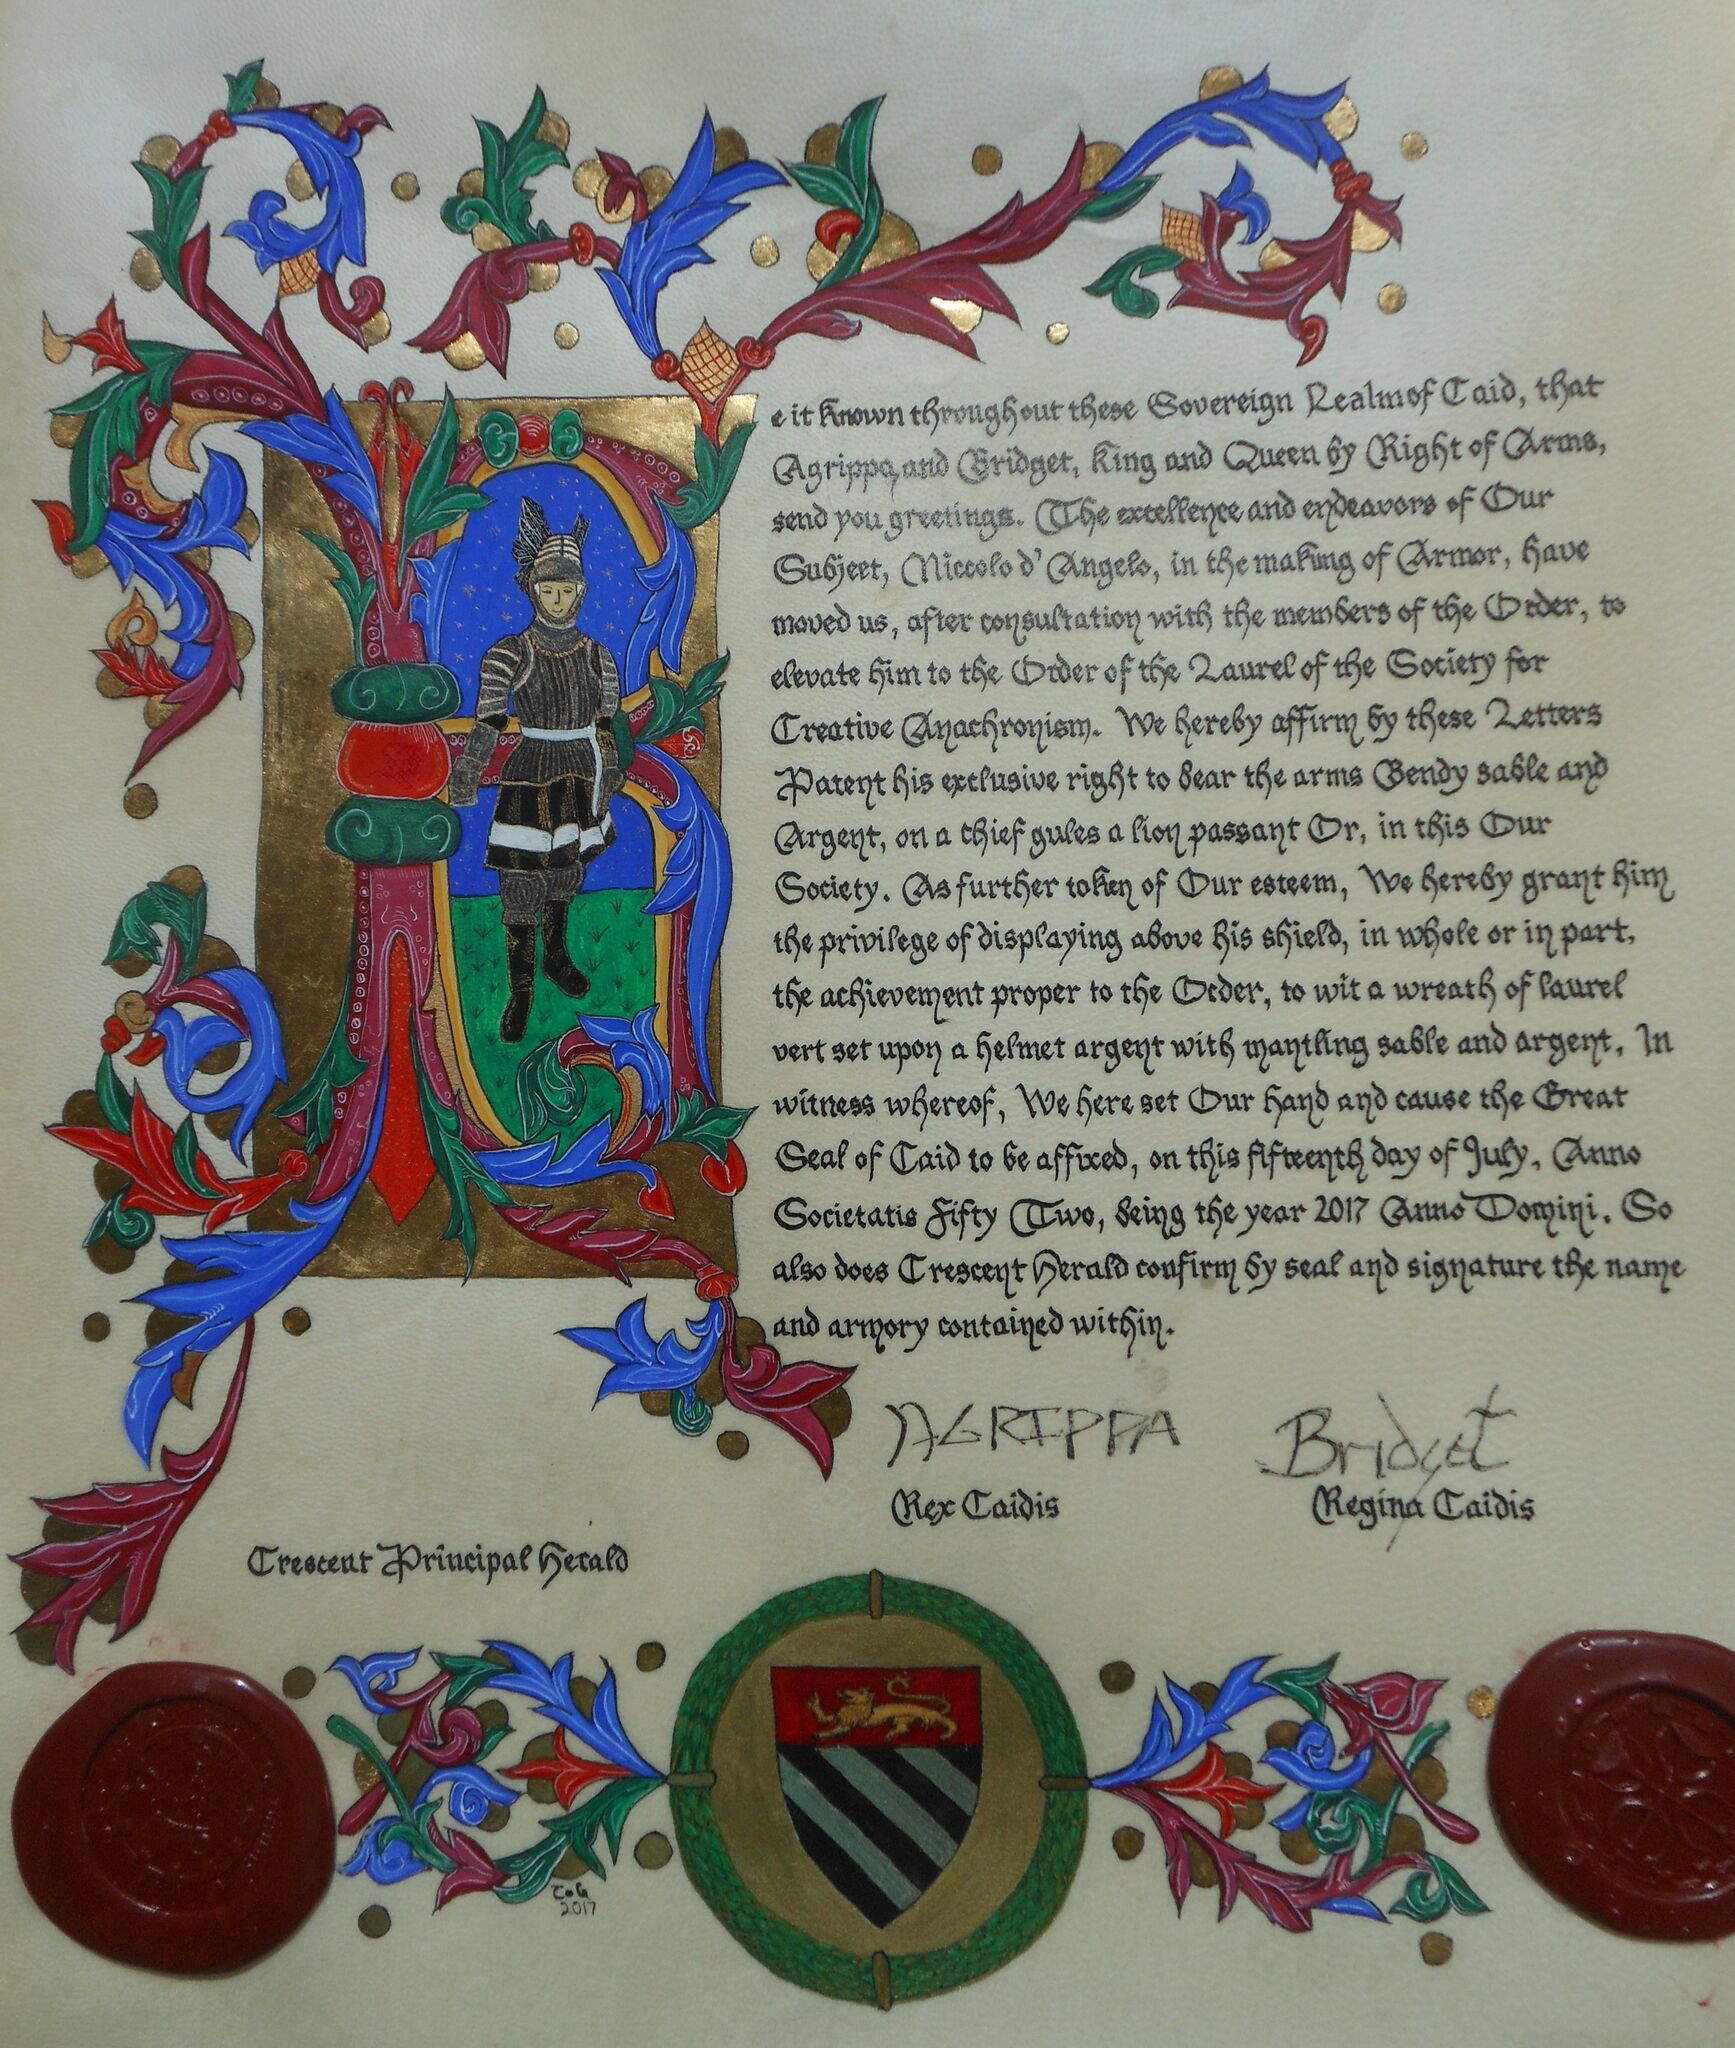 Be it known throughout these Sovereign Realm of Caid, that
Agrippa, and Bridget, King and Queen by Right of Arms,
send you greetings. The excellence and endeavors of Our
Subject, Niccolo d'Angelo, in the making of Armor, have
moved us, after consultation with the members of the Order, to
elevate him to the Order of the Laurel of the Society for
Creative Anachronism. We hereby affirm by these Letters
Patent his exclusive right to bear the arms Bendy sable and
Argent, on a chief gules a lion passant Or, in this Our
Society. As further token of Our esteem, We hereby grant him
the privilege of displaying above his shield, in whole or in part,
the achievement proper to the Order, to wit a wreath of laurel
vert set upon a helmet argent with mantling sable and argent. In
witness whereof, We here set Our hand and cause the Great
Seal of Caid to be affixed, on this fifteenth day of July, Anno
Societatis Fifty Two, being the year 2017 Anno Domini. So
also does Crescent Herald confirm by seal and signature the name
and armory contained within.
AGRIPPA Bridget
Rex Caidis Regina Caidis
Crescent Principal Herald
2017